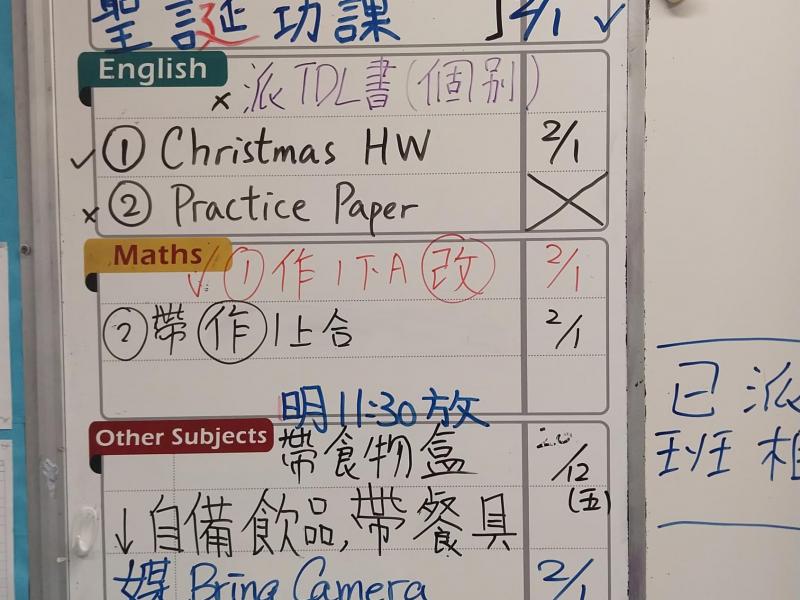 聖誕功課 2/1 ✓
English
× 派TDL書(個別)
✓ ① Christmas HW 2/1
× ② Practice Paper
Maths
✓ ① 作1下A 改 2/1
② 帶作1上合 2/1
明11:30放
Other Subjects
帶食物盒 20/12 (五)
↓自備飲品,帶餐具
媒 Bring Camera 2/1
已派
班相